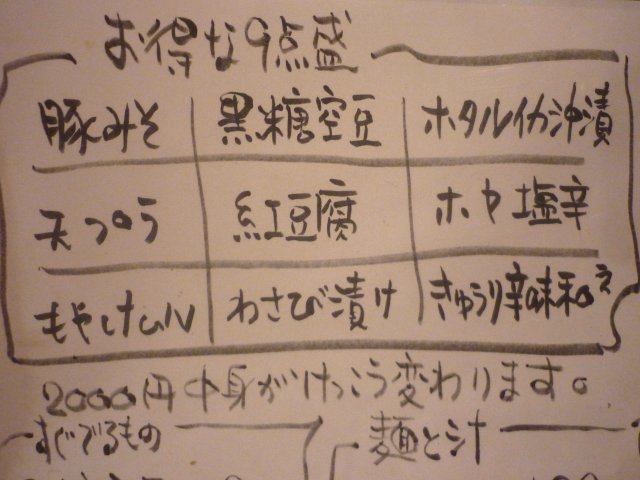 お得な9点盛
豚みそ 黒糖空豆 ホタルイカ沖漬
天つゆう 紅豆腐 ホヤ塩辛
もやしナムル わさび漬け きゅうり辛味和え
2000円 中身がけっこう変わります。
すぐでるもの 麺と汁